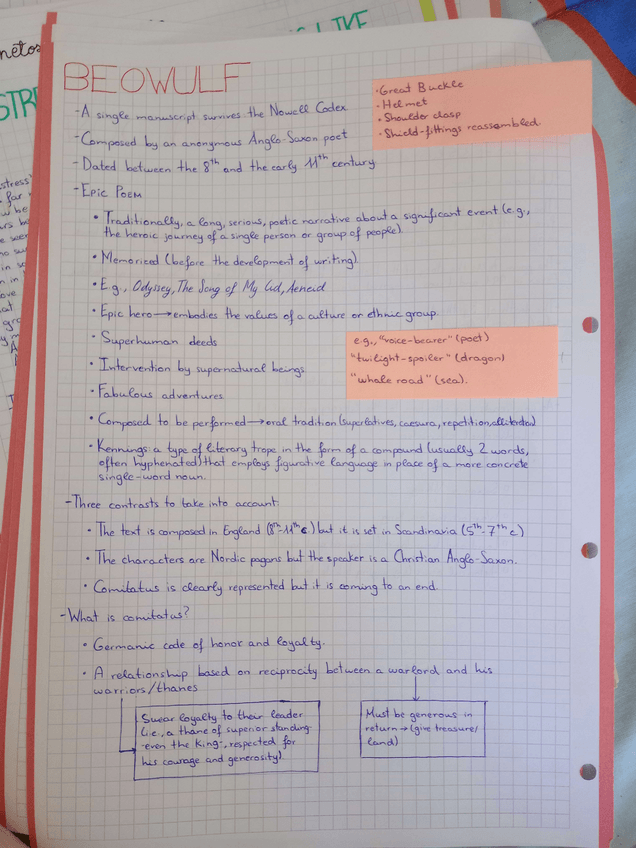 BEOWULF
- A single manuscript survives the Nowell Codex
- Composed by an anonymous Anglo-Saxon poet
- Dated between the 8th and the early 11th century
- Epic Poem
• Traditionally, a long, serious, poetic narrative about a significant event (e.g.,
the heroic journey of a single person or group of people)
• Memorized (before the development of writing)
• E.g., Odyssey, The Song of My Cid, Aeneid
• Epic hero → embodies the values of a culture or ethnic group.
• Superhuman deeds
• Intervention by supernatural beings
• Fabulous adventures
• Composed to be performed → oral tradition (superlatives, caesura, repetition, alliteration)
• Kennings: a type of literary trope in the form of a compound (usually 2 words,
often hyphenated) that employs figurative language in place of a more concrete
single-word noun.
- Three contrasts to take into account:
• The text is composed in England (8th-11th c) but it is set in Scandinavia (5th-7th c)
• The characters are Nordic pagans but the speaker is a Christian Anglo-Saxon.
• Comitatus is clearly represented but it is coming to an end.
- What is comitatus?
• Germanic code of honor and loyalty.
• A relationship based on reciprocity between a warlord and his
warriors/thanes
Swear loyalty to their leader
(i.e., a thane of superior standing-
-even the King-, respected for
his courage and generosity).
Must be generous in
return → (give treasure/
land)
• Great Buckle
• Helmet
• Shoulder clasp
• Shield-fittings reassembled.
e.g., "voice-bearer" (poet)
"twilight-spoiler" (dragon)
"whale road" (sea).
LIKE
netos
STRE
stress